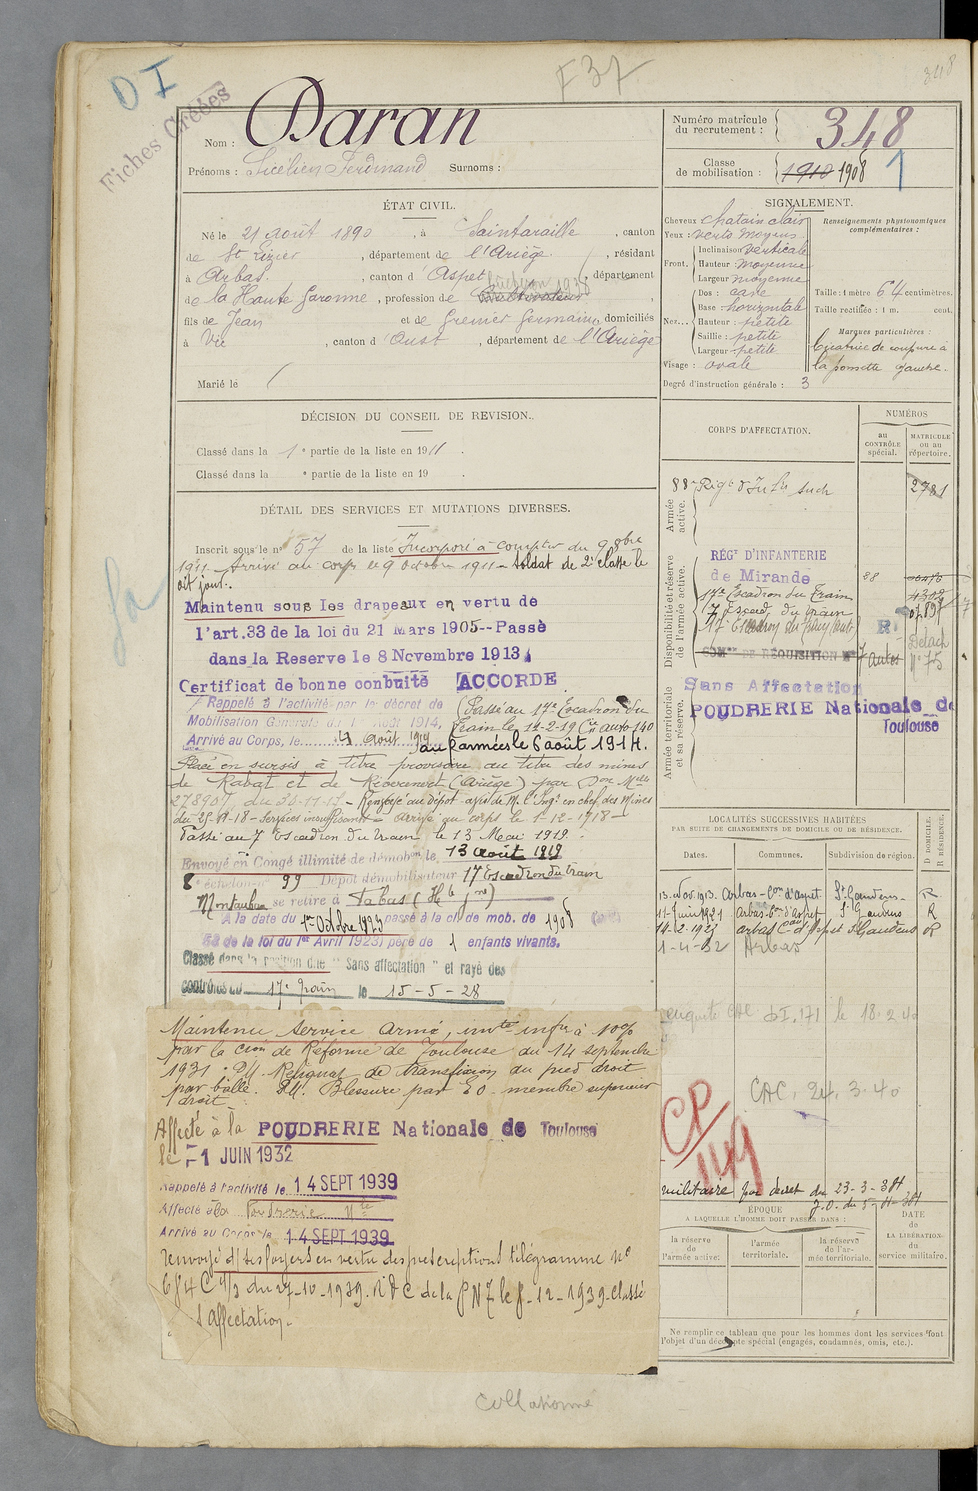 D I
F 37
348
Fiches Créées
Nom : Daran
Prénoms : Ferdinand Surnoms :
Numéro matricule du recrutement : 348
Classe de mobilisation : 1910 1908 1
ÉTAT CIVIL.
Né le 21 août 1890, à Saintaraille, canton
de St Lizier, département de l'Ariège, résidant
à Arbas, canton d'Aspet, département
de la Haute Garonne, profession de Cultivateur,
fils de Jean et de Grenier Germaine, domiciliés
à Vic, canton d'Oust, département de l'Ariège
Marié le
SIGNALEMENT.
Cheveux chatain clair
Yeux : verts moyens
Front. Inclinaison verticale
Hauteur moyenne
Largeur moyenne
Nez... Dos : cave
Base : horizontale
Hauteur : petite
Saillie : petite
Largeur petite
Visage : ovale
Renseignements physionomiques complémentaires :
Taille : 1 mètre 64 centimètres.
Taille rectifiée : 1 m. cent.
Marques particulières :
Cicatrice de coupure à
la pomette gauche.
Degré d'instruction générale : 3
DÉCISION DU CONSEIL DE REVISION.
Classé dans la 1e partie de la liste en 1911.
Classé dans la e partie de la liste en 19 .
CORPS D'AFFECTATION.
NUMÉROS
au CONTRÔLE spécial.
MATRICULE ou au répertoire.
Armée active.
88e Rég't d'Inf'ie 2781
Disponibilité et réserve de l'armée active.
RÉGt D'INFANTERIE
de Mirande 88
17e Escadron du Train
7 Escad. du train
SOMon DE RÉQUISITION
7 autos
Détach
N° 75
Armée territoriale et sa réserve.
Sans Affectation
POUDRERIE Nationale de
Toulouse
DÉTAIL DES SERVICES ET MUTATIONS DIVERSES.
Inscrit sous le n° 57 de la liste Incorporé à compter du 9 8bre
1911. Arrivé au corps le 9 octobre 1911 - soldat de 2e classe le
dit jour.
Maintenu sous les drapeaux en vertu de
l'art.33 de la loi du 21 Mars 1905--Passé
dans la Reserve le 8 Novembre 1913
Certificat de bonne conduite ACCORDE
Rappelé à l'activité par le décret de
Mobilisation Générale du 1er Août 1914.
Arrivé au Corps, le 4 août 1914
Passé au 17e Escadron du
Train le 14-2-19 Cie auto 140
aux armées le 6 août 1914.
Placé en sursis à titre provisoire au titre des mines
de Rabat et de Riverenert (Ariège) par Don Mlle
278907 du 30-11-17 - Renvoyé au dépôt avis de M. l'Ing. en chef des Mines
du 25-11-18 - Services insuffisants - arrivé au corps le 1-12-1918 -
Passé au 7 Escadron du train le 13 Mai 1919.
Envoyé en Congé illimité de démobon le, 13 août 1919
8e échelon n° 99 Dépôt démobilisateur 17 Escadron du train
Montauban se retire à
A la date du 1er Octobre 1923 passé à la cl. de mob. de 1908
58 de la loi du 1er Avril 1923) père de 1 enfants vivants.
Classé dans la position dite "Sans affectation" et rayé des
contrôles du 17e Train le 15-5-28
LOCALITÉS SUCCESSIVES HABITÉES
PAR SUITE DE CHANGEMENTS DE DOMICILE OU DE RÉSIDENCE.
Dates. Communes. Subdivision de région. D DOMICILE. R RÉSIDENCE.
13 Nov. 1913. Arbas - Con d'Aspet St Gaudens - R
11 Juin 1921 Arbas Con d'Aspet St Gaudens R
14-2-1921 arbas Con d'Aspet St Gaudens R
1-4-32 Arbas
enquête CAC D.I. 171 le 18.2.40
CAC. 24.3.40
CP
1149
Maintenu Service Armé, invté infre à 10%
par la Cion de Réforme de Toulouse du 14 septembre
1931. Reliquat de transfixion du pied droit
par balle. Blessure par E.O. membre supérieur
droit
Affecté à la POUDRERIE Nationale de Toulouse
le -1 JUIN 1932
Rappelé à l'activité le 14 SEPT 1939
Affecté à la Poudrerie Nle
Arrivé au Corps le 14 SEPT 1939
renvoyé d/ ses foyers en vertu des prescriptions télégramme N°
6/4 C 1/3 du 27-10-1939. RDC de la PN7 le 8-12-1939. classé
s/ affectation.
militaire par décret du 23-3-38
J.O. du
ÉPOQUE
A LAQUELLE L'HOMME DOIT PASSER DANS :
DATE de LA LIBÉRATION du service militaire.
la réserve de l'armée active.
l'armée territoriale.
la réserve de l'armée territoriale.
Ne remplir ce tableau que pour les hommes dont les services font
l'objet d'un décompte spécial (engagés, condamnés, omis, etc.).
Collationné